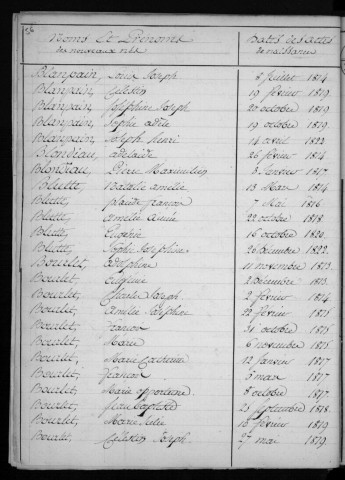 Noms et Prénoms Dates des actes
des nouveaux nés de naissance
Blanpain, Louis Joseph 8 juillet 1814
Blanpain, Celestin 19 février 1819
Blanpain, Joséphine Joseph 20 octobre 1819
Blanpain, Sophie adèle 19 octobre 1819
Blanpain, Joseph henri 14 avril 1822
Blondiau, adelaïde 26 février 1814
Blondiau, Pierre Maximilien 3 Janvier 1817
Blutte, Natalie amelie 13 Mars 1814
Blutte, françois 7 Mai 1816
Blutte, amelie aimée 22 octobre 1818
Blutte, Eugénie 16 octobre 1820
Blutte, Sophie Josephine 26 Décembre 1822
Bourlet, Josephine 11 novembre 1813
Bourlet, Eugenie 2 Décembre 1813
Bourlet, Charles Joseph 2 février 1814
Bourlet, Amelie Josephine 22 février 1815
Bourlet, françois 31 octobre 1815
Bourlet, Marie 6 novembre 1815
Bourlet, Marie Catherine 12 Janvier 1817
Bourlet, francois 5 mars 1817
Bourlet, Marie 8 octobre 1817
Bourlet, Jean baptiste 25 Septembre 1818
Bourlet, Marie Julie 13 février 1819
Bourlet, Celestin Joseph 27 mai 1819